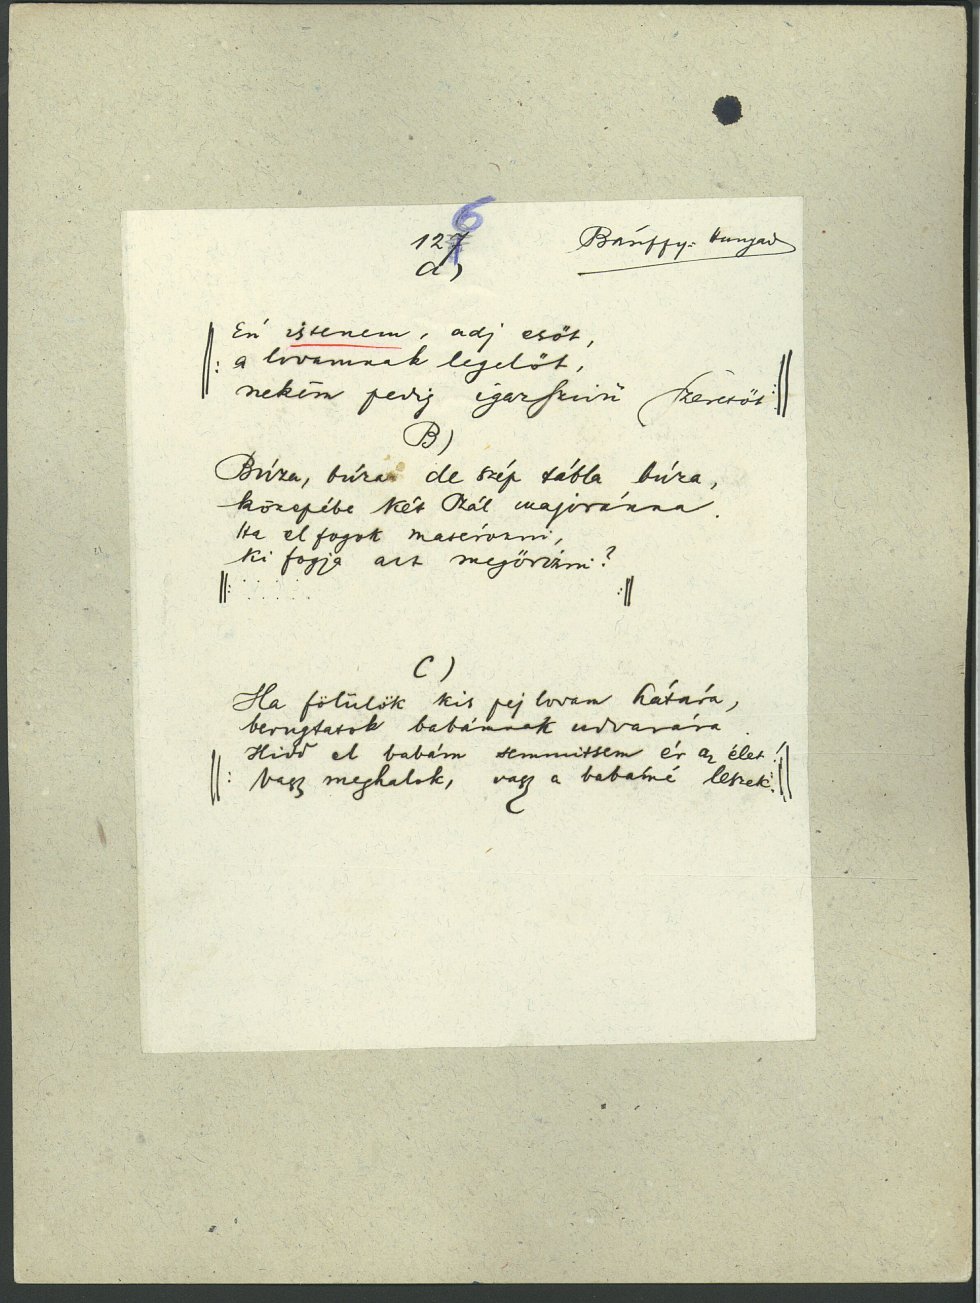 6
127
a)
Bánffy-Hunyad
Én istenem, adj esőt,
a lovamnak legelőt,
nekëm pedig igazszivű szeretőt
B)
Búza, búza de szép tábla búza,
közepébe két szál majoránna.
Ha el fogok masérozni,
ki fogja azt megőrizni?
C)
Ha fölülök kis pej lovam hátára,
berugtatok babámnak udvarára.
Hidd el babám semmitsem ér az élet!
Vagy meghalok, vagy a babámé leszek.